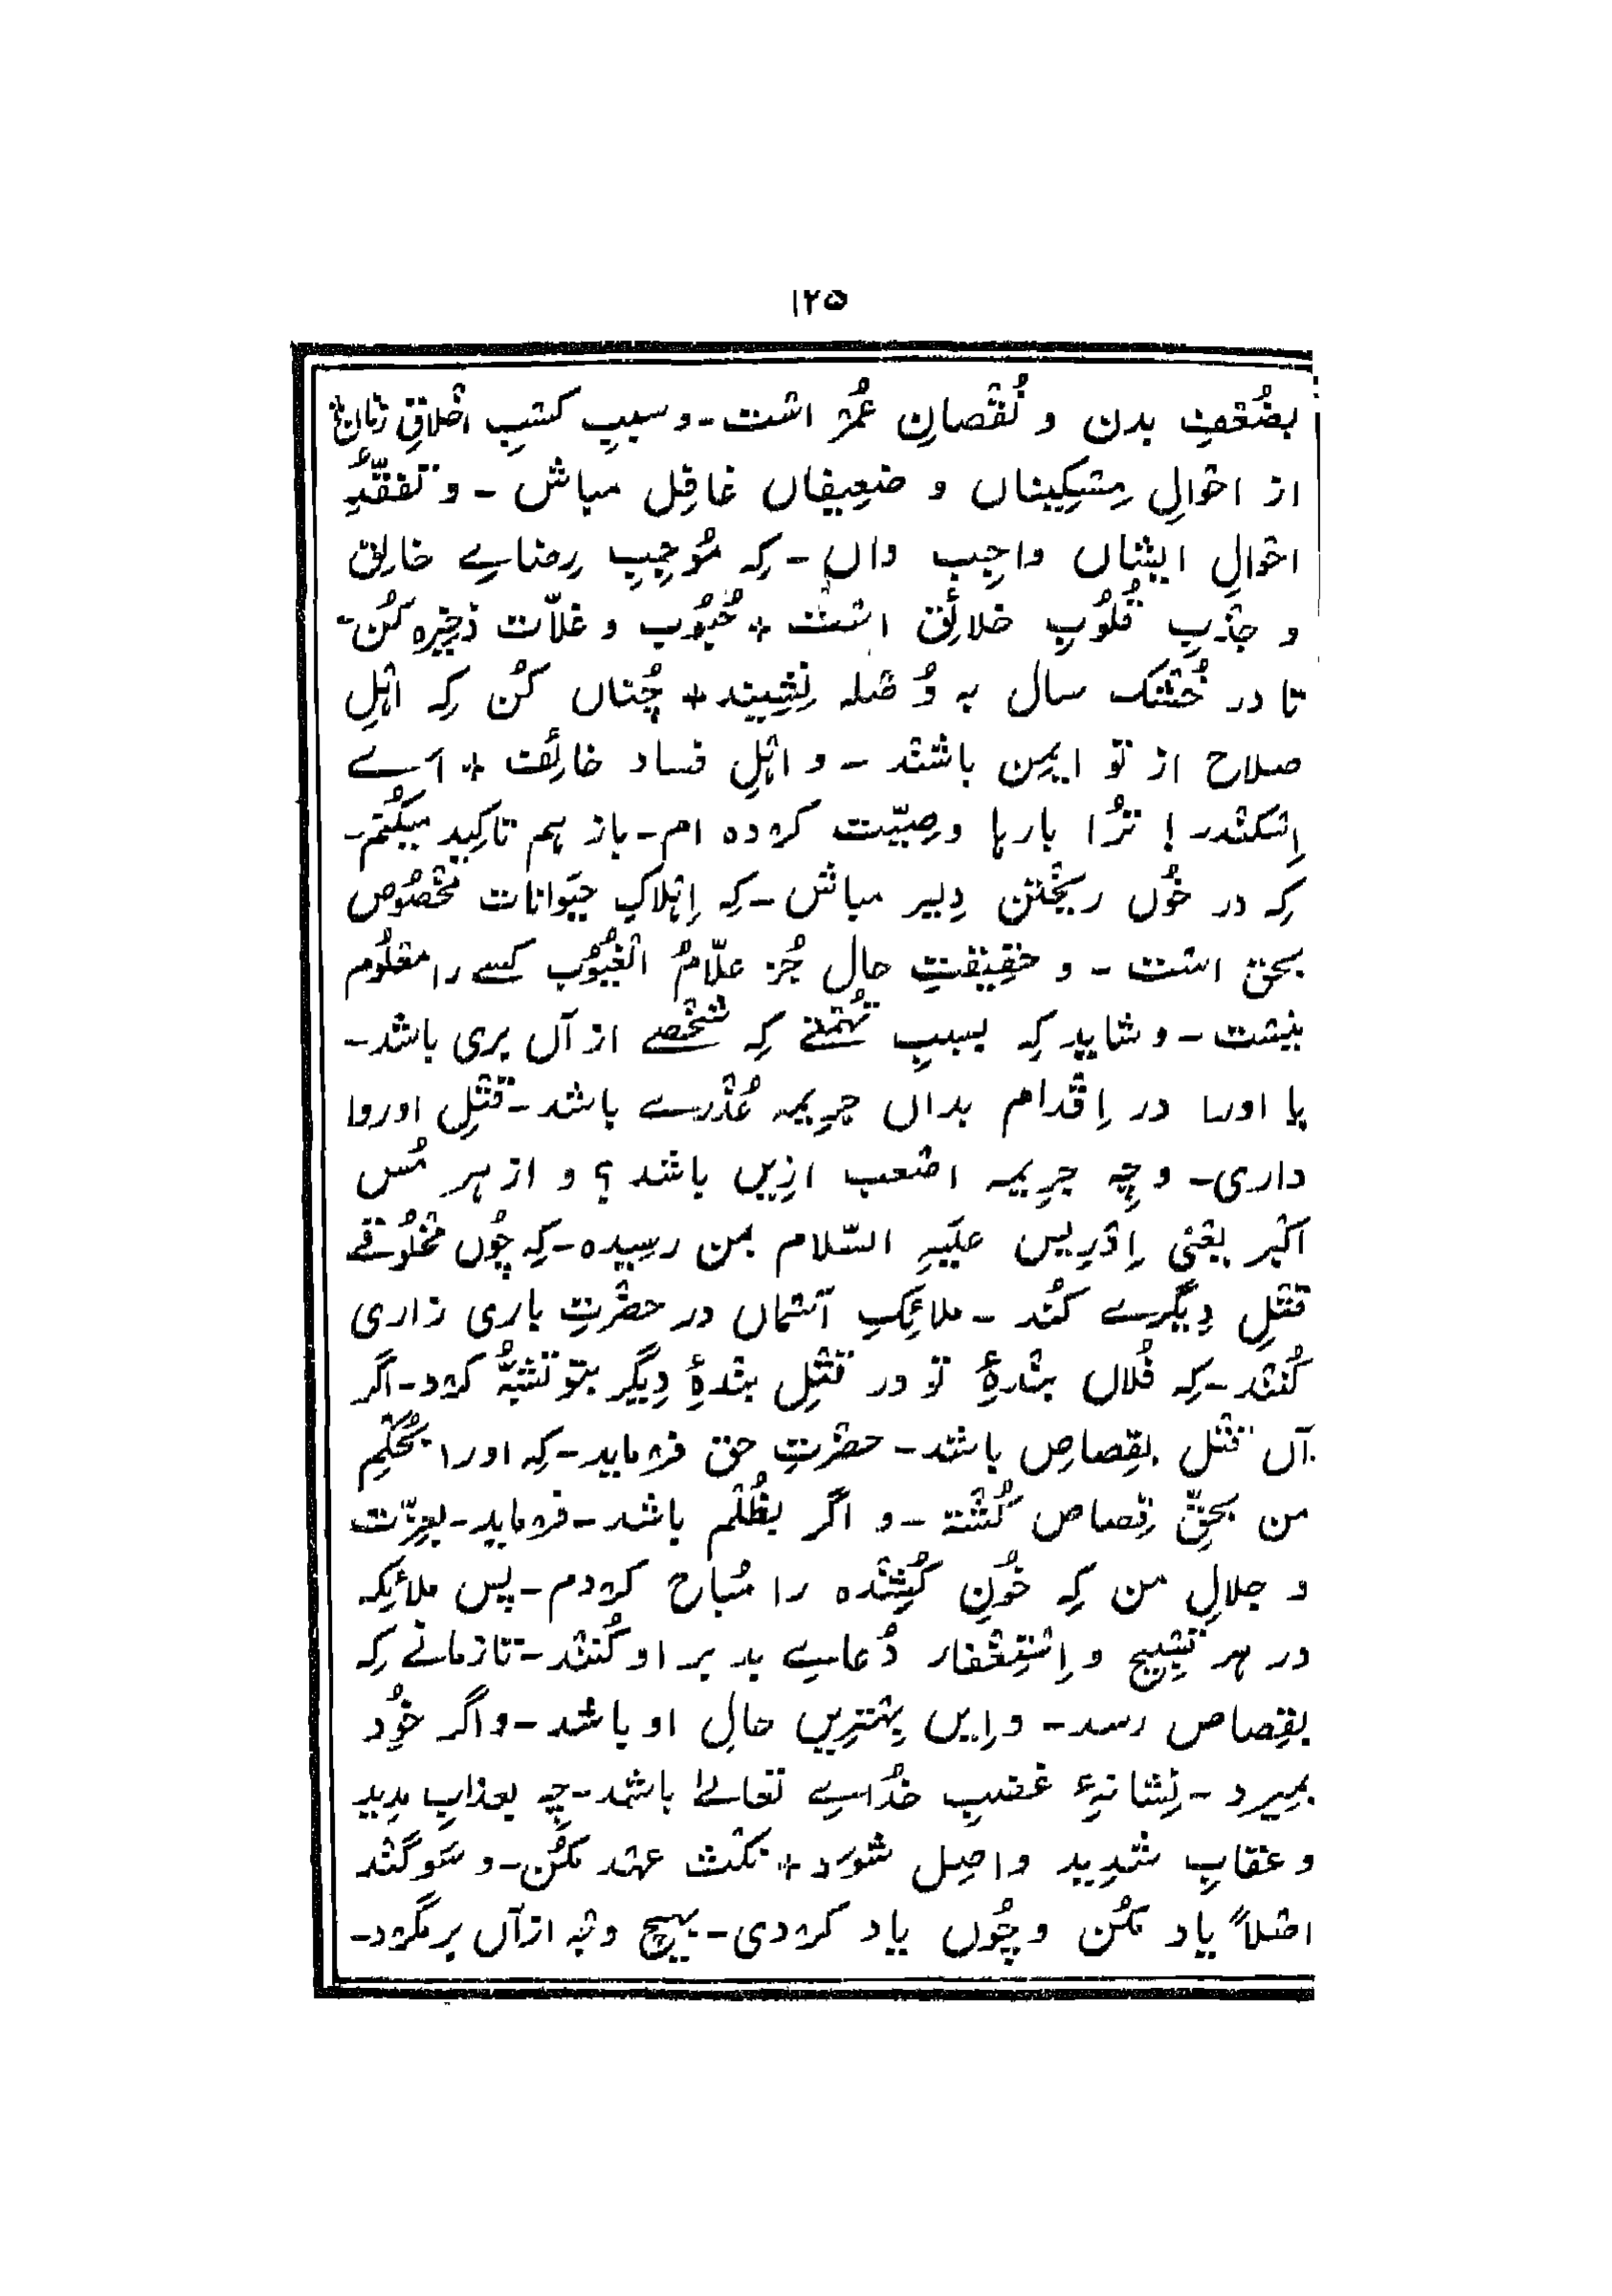 ۱۲۵
بضُعفِ بدن و نُقصانِ عُمر است - و سببِ کسبِ اخلاقِ زنان
از احوالِ مِسکِیناں و ضعِیفاں غافِل مباش - و تفقُّدِ
احوالِ ایشاں واجِب داں - کِہ مُوجِبِ رِضاے خالِق
و جذبِ قُلُوبِ خلائِق است + حُبُوب و غلّات ذخِیرہ کُن -
تا در خُشک سال بہ وُ ضلہ نِشِیند + چُناں کُن کِہ اہلِ
صلاح از تو ایمِن باشند - و اہلِ فساد خائِف + اے
اِسکندر ! تُرا بارہا وصِیّت کردہ ام - باز ہم تاکِید میکُنم -
کِہ در خُوں ریختن دِلیر مباش - کِہ اِہلاکِ حیَوانات مخصُوص
بحق است - و حقِیقتِ حال جُز علّامُ الغُیُوب کسے را معلُوم
نیست - و شاید کِہ بسببِ تُہمتے کِہ شخصے از آں بری باشد -
یا اورا در اِقدام بداں جرِیمہ عُذرے باشد - قتلِ او روا
داری - و چِہ جرِیمہ اصعب ازِیں باشد ؟ و از ہرمُس
اکبر یعنی اِدرِیس علَیہِ السّلام بمن رسِیدہ - کِہ چُوں مخلُوقے
قتلِ دِیگرے کُند - ملائِکِ آسماں در حضرتِ باری زاری
کُنند - کِہ فُلاں بندۂ تو در قتلِ بندۂ دِیگر بتو تشبُّہ کرد - اگر
آں قتل بقِصاص باشد - حضرتِ حق فرماید - کِہ اورا بحُکمِ
من بحقِّ قِصاص کُشتہ - و اگر بظُلم باشد - فرماید - بعِزّت
و جلالِ من کِہ خُونِ کُشِندہ را مُباح کردم - پس ملائِکہ
در ہر تسبِیح و اِستِغفار دُعاے بد بر او کُنند - تا زمانے کِہ
بقِصاص رسد - و اِیں بِہترِیں حالِ او باشد - و اگر خُود
بمِیرد - نِشانۂ غضبِ خُداے تعالےٰ باشد - چِہ بعذابِ مدِید
و عقابِ شدِید واصِل شوَد + نکثِ عہد مکُن - و سَوگند
اصلاً یاد مکُن و چُوں یاد کردی - بہیچ وجہ ازآں برمگرد -